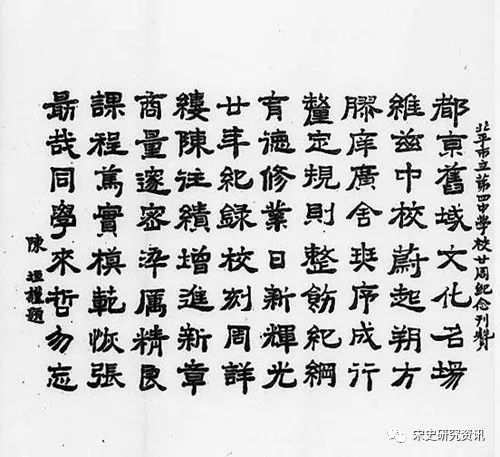 北平市立第四中學校廿周紀念刊贊
都京舊域文化名場
維茲中校蔚起朔方
膠庠廣舍班序成行
釐定規則整飭紀綱
育德修業日新輝光
廿年紀錄校刻周詳
縷陳往績增進新章
商量邃密淬厲精良
課程篤實模範恢張
勗哉同學來哲勿忘
陳垣謹題
宋史研究资讯